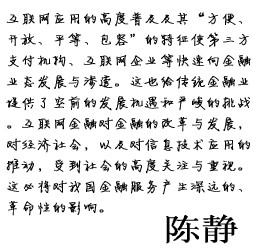 互联网应用的高度普及及其“方便、
开放、平等、包容”的特征使第三方
支付机构、互联网企业等快速向金融
业态发展与渗透。这也给传统金融业
提供了空前的发展机遇和严峻的挑战
。互联网金融对金融的改革与发展，
对经济社会，以及对信息技术应用的
推动，受到社会的高度关注与重视。
这必将对我国金融服务产生深远的、
革命性的影响。
陈静